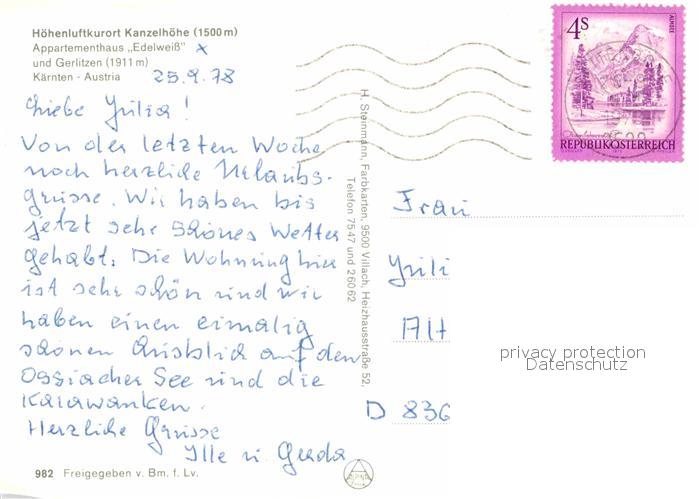 Höhenluftkurort Kanzelhöhe (1500 m)
Appartementhaus „Edelweiß" x
und Gerlitzen (1911 m)
Kärnten - Austria
25.9.78
Liebe Julia!
Von der letzten Woche
noch herzliche Urlaubs-
grüsse. Wir haben bis
jetzt sehr schönes Wetter
gehabt. Die Wohnung hier
ist sehr schön und wir
haben einen einmalig
schönen Ausblick auf den
Ossiacher See und die
Karawanken.
Herzliche Grüsse
Ille u. Gerda
982 Freigegeben v. Bm. f. Lv.
H. Steinmann, Farbkarten, 9500 Villach, Heizhausstraße 52,
Telefon 7547 und 26062
4S
ALMSEE
REPUBLIK ÖSTERREICH
Frau
Juli
Alt
D 836
privacy protection
Datenschutz